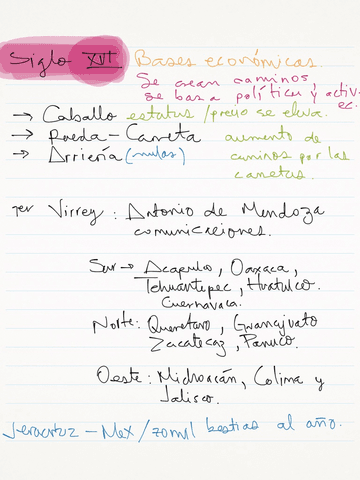 Siglo XVI Bases económicas.
Se crean caminos,
se basa política y activ
ec.
→ Caballo estatus / precio se eleva.
→ Rueda - Carreta aumento de
→ Arriería (mulas) caminos por las
carretas.
1er Virrey: Antonio de Mendoza
comunicaciones.
Sur → Acapulco, Oaxaca,
Tehuantepec, Huatulco.
Cuernavaca.
Norte: Queretaro, Guanajuato
Zacatecaz, Panuco.
Oeste: Michoacán, Colima y
Jalisco.
Veracruz - Mex / 70 mil bestias al año.